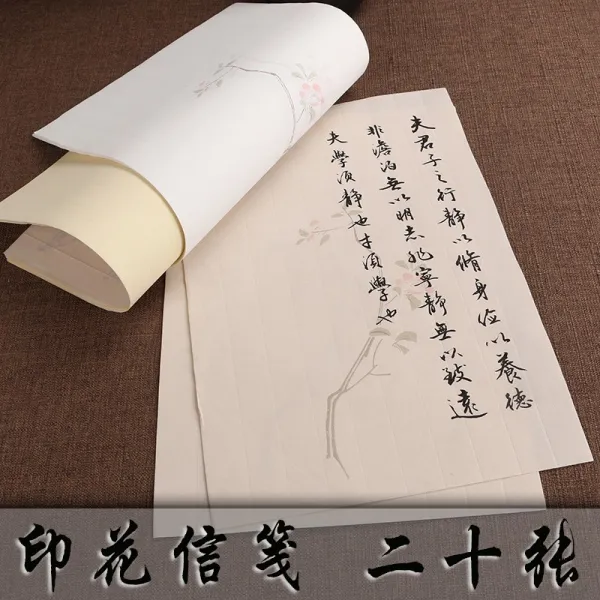 夫君子之行静以脩身俭以養德
非澹泊無以明志非寧静無以致遠
夫學須静也才須學也
印花信笺 二十张